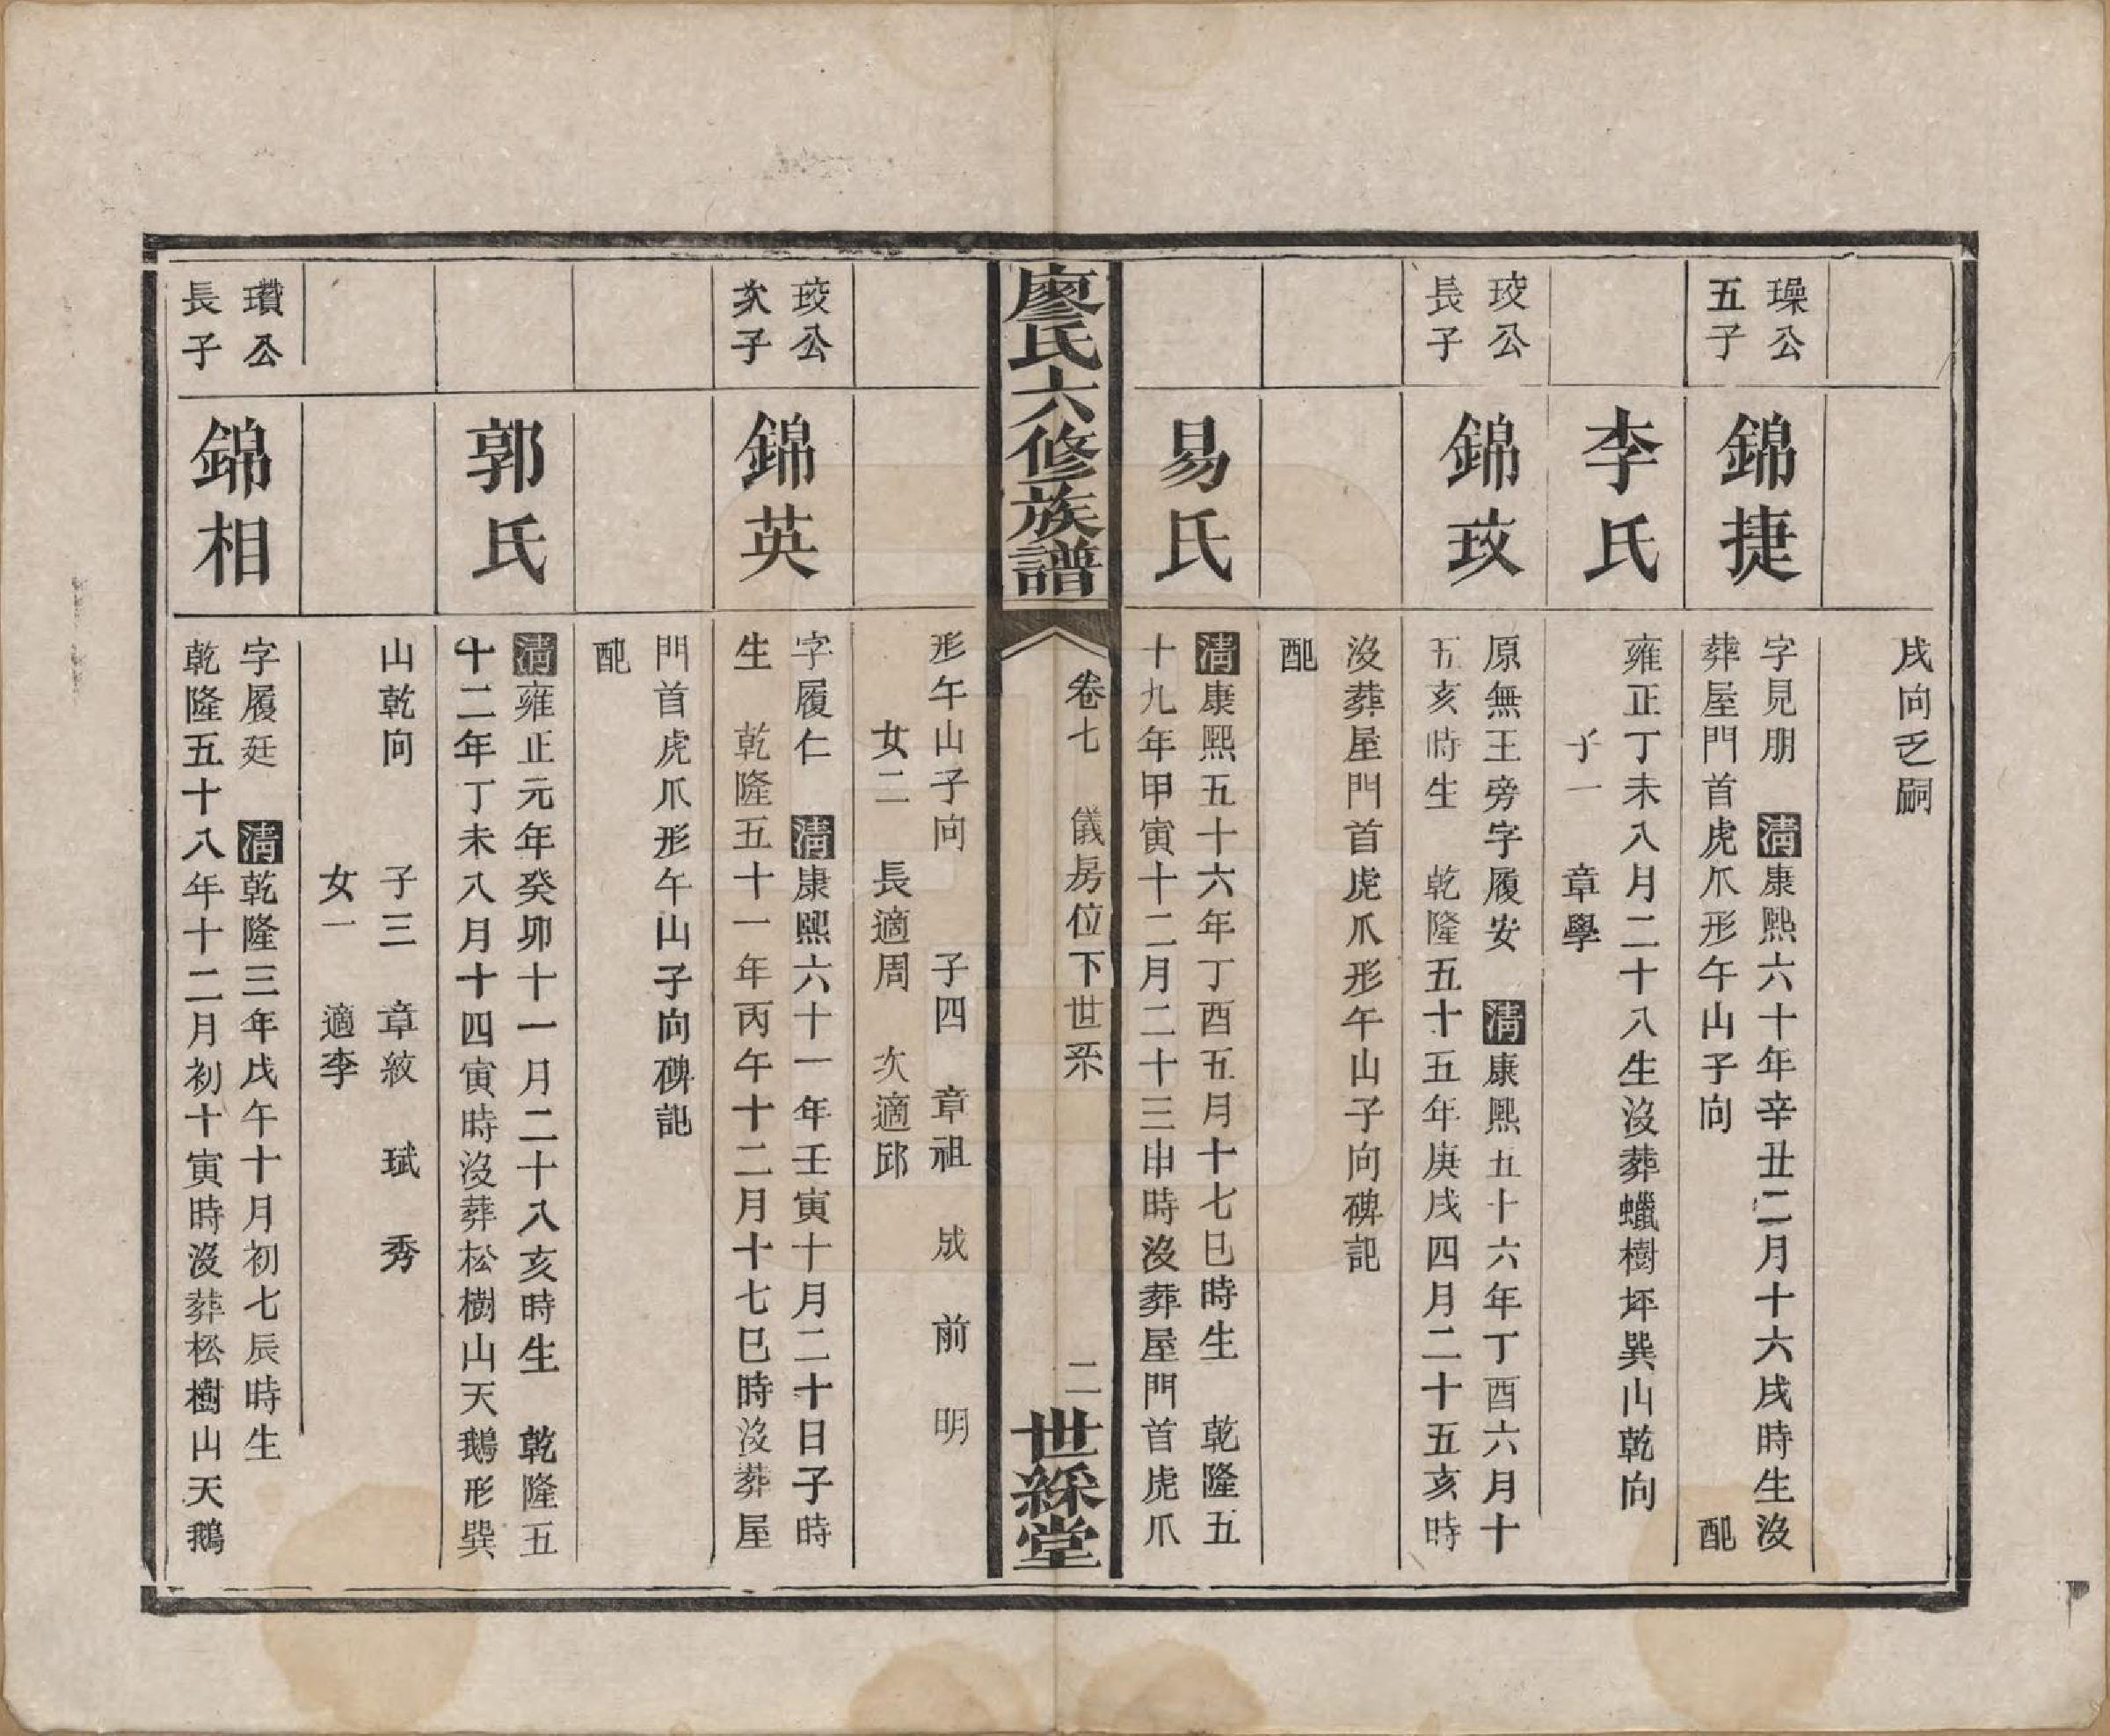 戌向乏嗣
璪公
五子
錦捷
字見朋　清康熙六十年辛丑二月十六戌時生沒
葬屋門首虎爪形午山子向　配
李氏
雍正丁未八月二十八生沒葬蠟樹坪巽山乾向
子一　章學
玫公
長子
錦玟
原無王旁字履安　清康熙五十六年丁酉六月十
五亥時生　乾隆五十五年庚戌四月二十五亥時
沒葬屋門首虎爪形午山子向碑記
配
易氏
清康熙五十六年丁酉五月十七巳時生　乾隆五
十九年甲寅十二月二十三申時沒葬屋門首虎爪
廖氏六修族譜
卷七　儀房位下世系　二
世綵堂
形午山子向　子四　章祖　成　前　明
女二　長適周　次適邱
玫公
次子
錦英
字履仁　清康熙六十一年壬寅十月二十日子時
生　乾隆五十一年丙午十二月十七巳時沒葬屋
門首虎爪形午山子向碑記
配
郭氏
清雍正元年癸卯十一月二十八亥時生　乾隆五
十二年丁未八月十四寅時沒葬松樹山天鵝形巽
山乾向　子三　章紋　斌　秀
女一　適李
瓚公
長子
錦相
字履廷　清乾隆三年戊午十月初七辰時生
乾隆五十八年十二月初十寅時沒葬松樹山天鵝